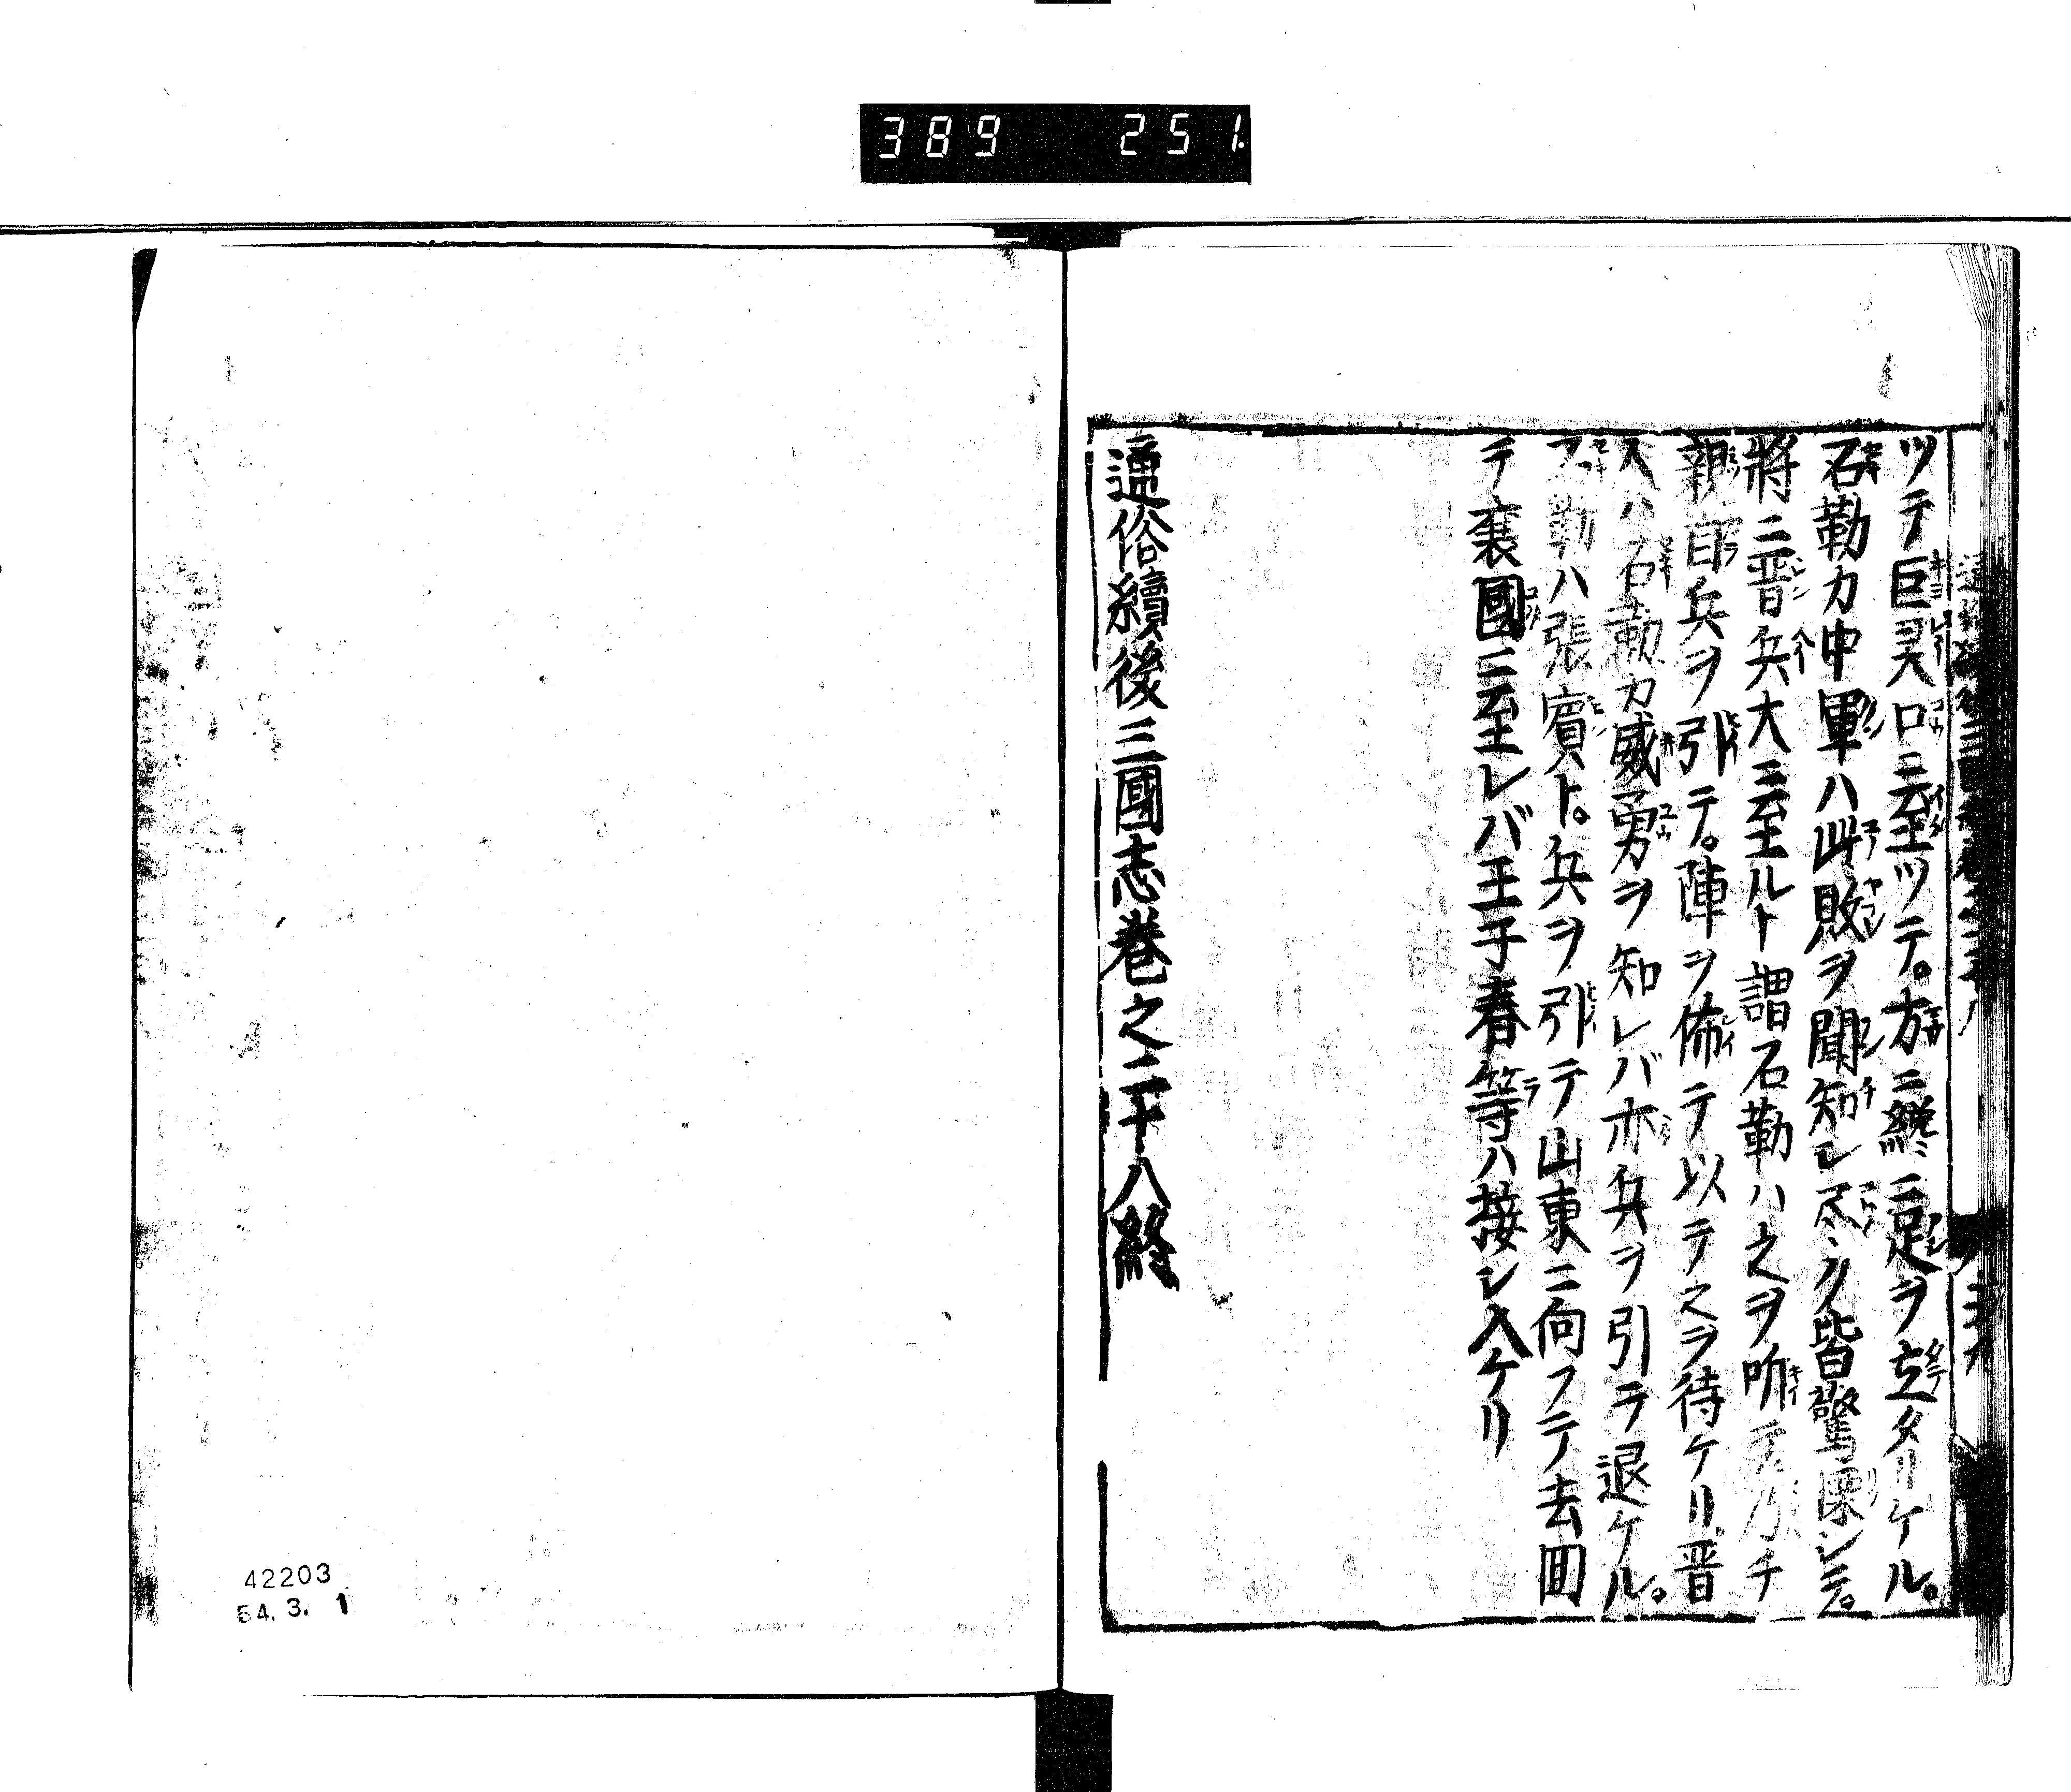 389 251
ツテ巨昊口ニ至ツテ。方ニ纔ニ足ヲ立タリケル。
石勒カ中軍ハ此敗ヲ聞知シ尽ク皆驚慄シテ。
將ニ晋兵大ニ至ルト謂石勒ハ之ヲ听テ乃チ
親自兵ヲ引テ。陣ヲ佈テ以テ之ヲ待ケリ。晋
人ハ石勒カ威勇ヲ知レバ亦兵ヲ引テ退ケル。
石勒ハ張賓ト。兵ヲ引テ山東ニ向フテ去回
テ襄國ニ至レバ王子春等ハ接シ入ケリ
通俗續後三國志巻之二十八終
42203
54.3.1